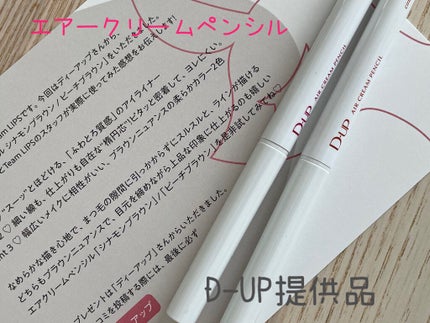 エアークリームペンシル
Team LIPSです。今回はディーアップさんから、
シナモンブラウン／ピーチブラウン」をいただきました。
Team LIPSのスタッフが実際に使ってみた感想をお伝えします！
"スーッ"とほどける、「ふわとろ質感」のアイライナー
ピタッと密着して、ヨレにくい。
♡ 細い線も、仕上がりも自在な"楕円芯"
♡ 幅広いメイクに相性がいい、ブラウンニュアンスの柔らかカラー2色
なめらかな描き心地で、まつ毛の隙間に引っかからずにスルスルと、ラインが描ける
どちらもブラウンニュアンスで、目元を締めながら上品な印象に仕上がるのも嬉しい
エアークリームペンシル「シナモンブラウン」／「ピーチブラウン」を是非試してみてね♡
プレゼントは「ディーアップ」さんからいただきました。
コミを投稿する際には、最後に必ず
アップ
D-UP AIR CREAM PENCIL
D-UP AIR CREAM PENCIL
D-UP提供品